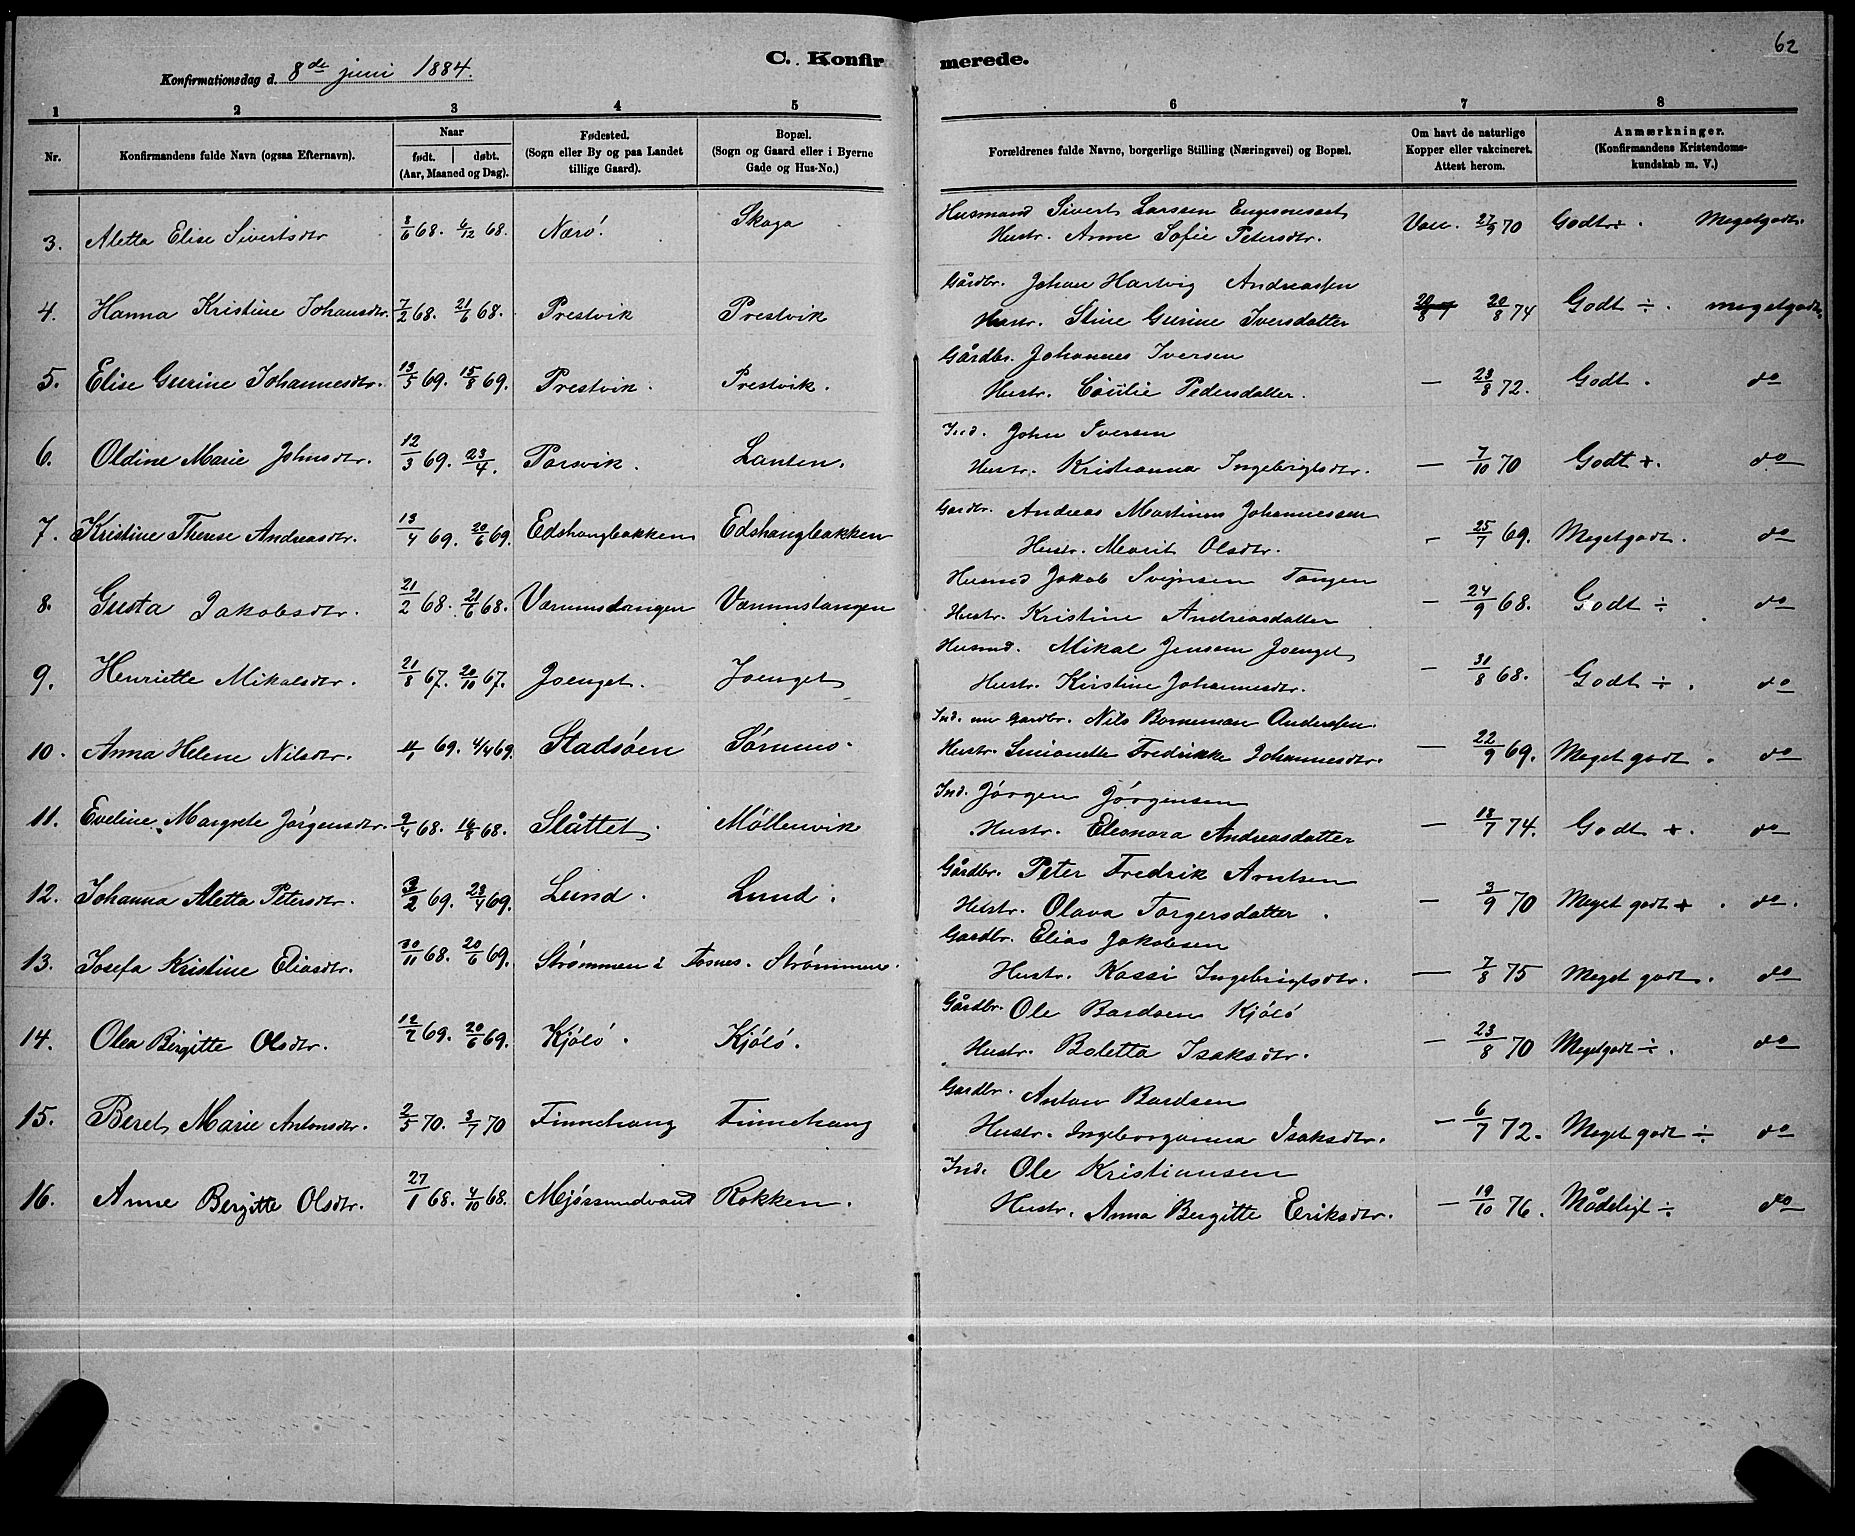 62
C. Konfirmerede.
Konfirmationsdag d. 8de juni 1884.
1 2 3 4 5 6 7 8
Nr.
Konfirmandens fulde Navn (ogsaa Efternavn).
Naar
født. | døbt.
(Aar, Maaned og Dag).
Fødested.
(Sogn eller By og paa Landet
tillige Gaard).
Bopæl.
(Sogn og Gaard eller i Byerne
Gade og Hus-No.)
Forældrenes fulde Navne, borgerlige Stilling (Næringsvei) og Bopæl.
Om havt de naturlige
Kopper eller vakcineret.
Attest herom.
Anmærkninger.
(Konfirmandens Kristendoms-
kundskab m. V.)
Husmand Sivert Larssen
3. Aletta Elise Sivertsdtr 8/6 68. 6/12 68. Nærö. Skaga Hustr. Anne Sofie Petersdtr. Vac. 27/9 70 Godt ÷. Megetgodt.
Gårdbr. Johan Hartvig Andreassen
4. Hanna Kristine Johansdtr. 7/2 68. 21/6 68. Prestvik Prestvik Hustr. Stine Gurine Iversdatter 20/8 74 Godt ÷. megetgodt.
Gårdbr. Johannes Iversen
5. Elise Gurine Johannesdtr. 13/5 69. 15/8 69. Prestvik. Prestvik. Hustr. Cecilie Pedersdatter. — 23/8 72. Godt. do
Ind. John Iversen
6. Oldine Marie Johnsdtr. 12/3 69. 23/4. Parsvik. Lanten. Hustr. Kristianna Ingebrigtsdtr. — 7/10 70 Godt +. do
Gardbr. Andreas Martinus Johannessen
7. Kristine Therese Andreasdtr. 13/4 69. 20/6 69. Edshaugbakken Edshaugbakken Hustr. Merit Olsdtr. — 25/7 69. Megetgodt. do
Husmd Jakob Svejnsen Tangen
8. Gusta Jakobsdtr. 21/2 68. 21/6 68. Værumstangen Værumstangen Hustr. Kristine Andreasdatter — 24/9 68. Godt ÷ do
Husmd. Mikal Jensen Joenget
9. Henriette Mikalsdtr. 21/8 67. 20/10 67. Joenget. Joenget Hustr. Kirstine Johannesdtr. — 31/8 68. Godt ÷. do
Ind. nu Gardbr. Nils Borneman Anderssen.
10. Anna Helene Nilsdtr. 69. 4/4 69. Stadsöen Sörmo. Hustr. Simonette Fredrikke Johannesdtr. — 22/9 69. Meget godt. do
Ind. Jörgen Jörgensen
11. Eveline Margrete Jörgensdtr. 9/4 68. 16/8 68. Slåttet. Möllervik Hustr. Eleonora Andreasdatter — 13/7 74. Godt +. do
Gårdbr. Peter Fredrik Arntsen
12. Johanna Aletta Petersdtr. 3/2 69. 23/4 69. Lund. Lund. Hustr. Olava Torgersdatter. — 3/9 70 Meget godt +. do.
Gardbr. Elias Jakobsen
13. Josefa Kristine Eliasdtr. 30/11 68. 20/6 69. Strømmen i Fosnes. Strømmen. Hustr. Kassi Ingebrigtsdtr. — 7/8 75 Meget godt. do
Gårdbr. Ole Bardsen Kjölö
14. Olea Birgitte Olsdtr. 12/2 69. 20/6 69. Kjölö. Kjölö. Hustr. Boletta Isaksdtr. — 23/8 70 Megetgodt ÷. do
Gardbr. Anton Bardsen
15. Beret Marie Antonsdtr. 2/5 70. 3/7 70 Finnehaug Finnehaug Hustr. Ingeborganna Isaksdtr. — 6/7 72. Meget godt ÷ do
Ind. Ole Kristiansen
16. Anne Bergitte Olsdtr. 27/1 68. 4/10 68. Mejörsundvand Rokken. Hustr. Anna Bergitte Eriksdtr. — 19/10 76. Mådeligt ÷ do